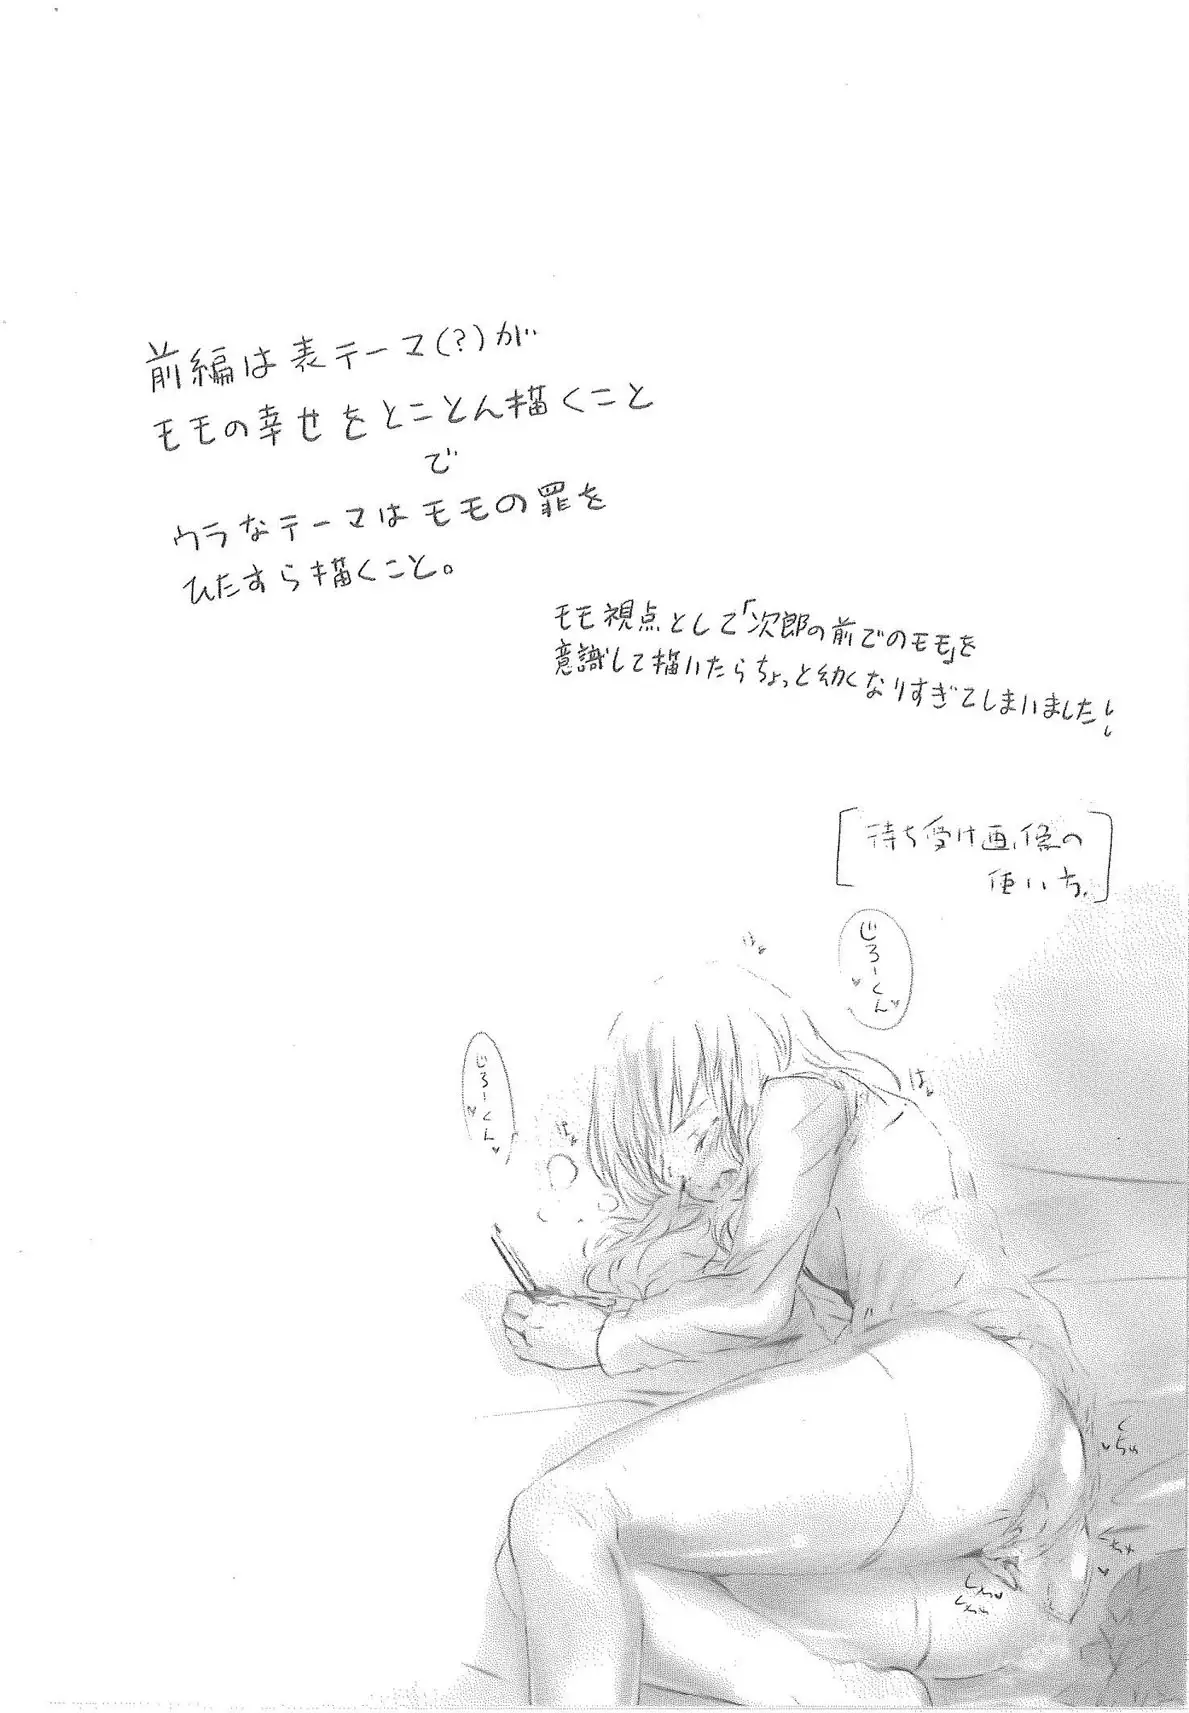 前編は表テーマ(?)が
モモの幸せをとことん描くこと
で
ウラなテーマはモモの罪を
ひたすら描くこと。
モモ視点として「次郎の前でのモモ」を
意識して描いたらちょっと幼くなりすぎてしまいました!!
[待ち受け画像の
使い方.]
じろーくん♥
じろーくん♥
はぁ
はぁ
はぁ
くちゅ